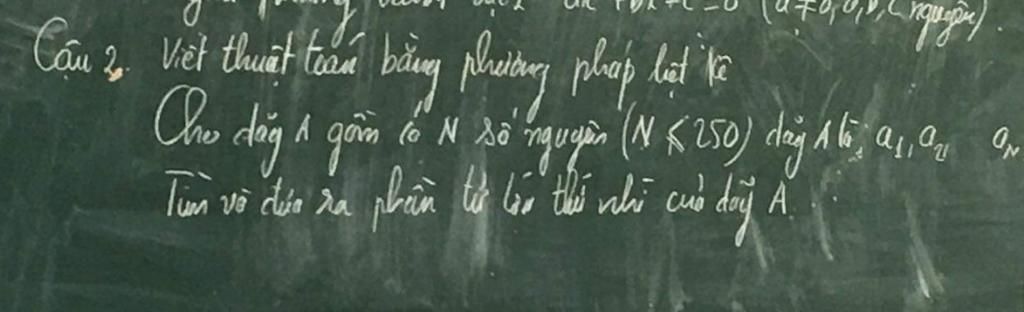 x + c = 0 (a ≠ 0, a, b, c nguyên).
Câu 2. Viết thuật toán bằng phương pháp liệt kê
Cho dãy A gồm có N số nguyên (N ≤ 250) dãy A là: a₁, a₂, a_N
Tìm và đưa ra phần tử lớn thứ nhì của dãy A.